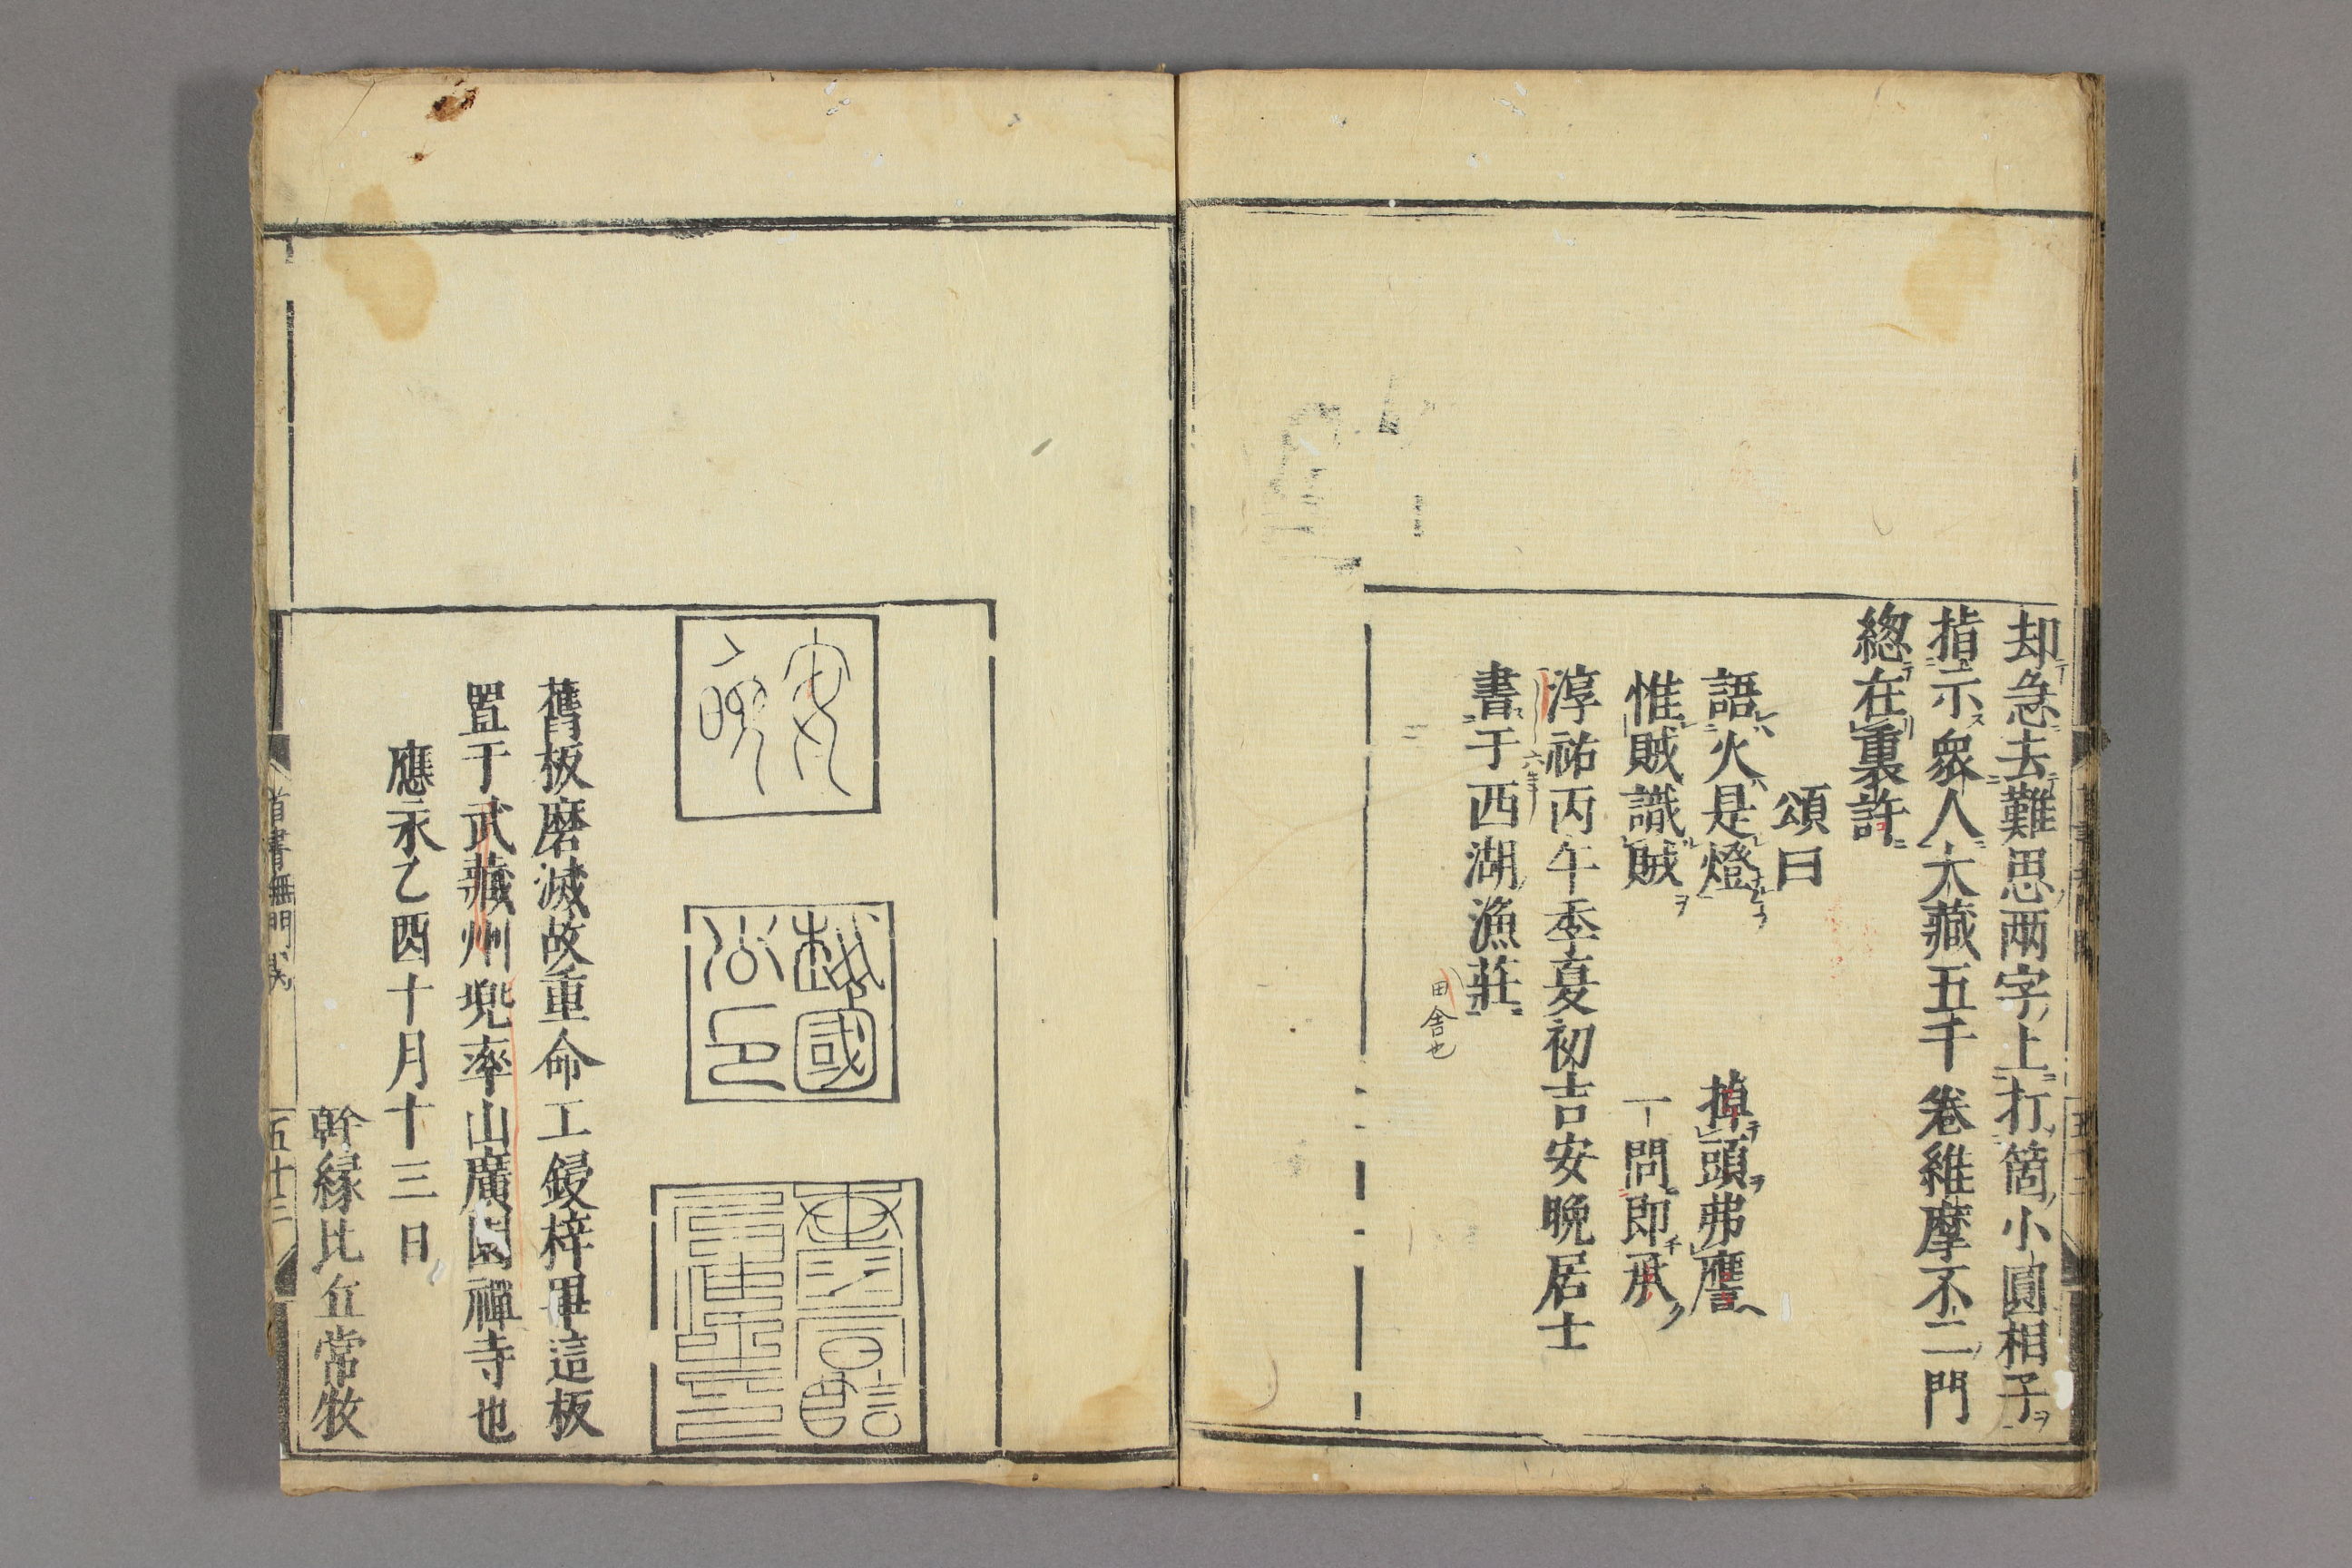 却急去難思兩字上打箇小圓相子
指示衆人大藏五千卷維摩不二門
緫在裏許
頌曰
語火是燈　掉頭弗譍
惟賊識賊　一問即承
淳祐丙午季夏初吉安晚居士
書于西湖漁莊
六年
田舎也
安晚
越國公印
舊板磨滅故重命工鋟梓畢這板
置于武藏州兜率山廣園禪寺也
應永乙酉十月十三日
幹縁比丘常牧
首書無門関
五十二